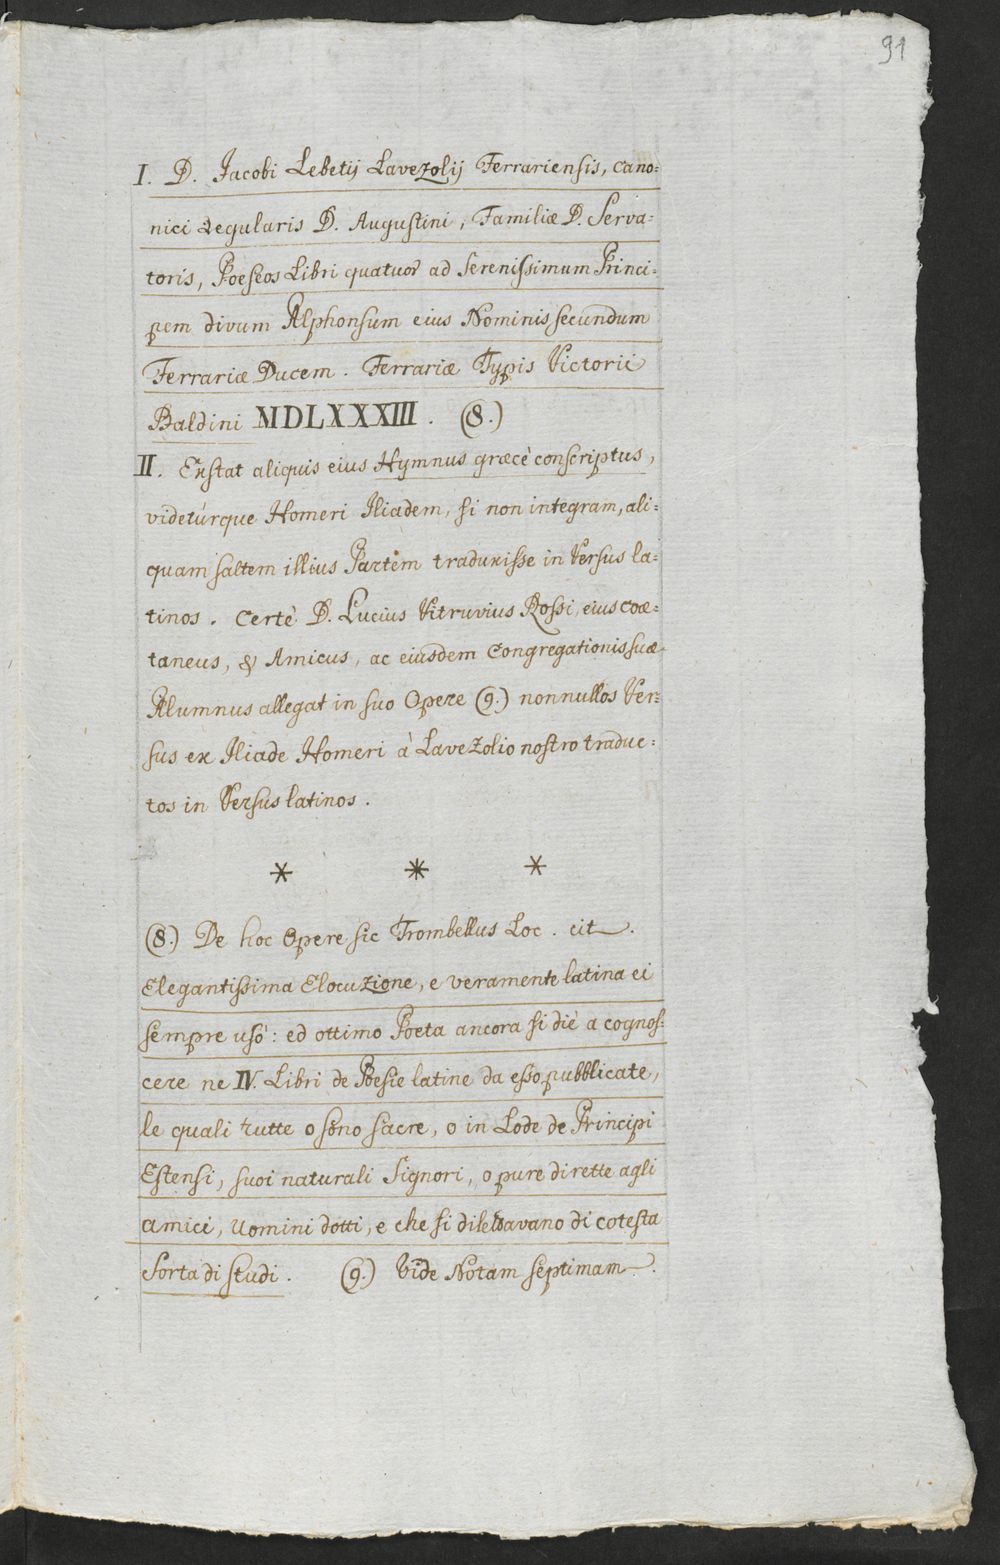 91
I. D. Jacobi Lebetij Lavezolij Ferrariensis, Cano=
nici Regularis D. Augustini, Familiæ D. Serva=
toris, Poeseos Libri quatuor ad Serenissimum Princi=
pem divum Alphonsum eius Nominis secundum
Ferrariæ Ducem. Ferrariæ Typis Victorii
Baldini MDLXXXIII. (8.)
II. Exstat aliquis eius Hymnus græcè conscriptus,
videtúrque Homeri Iliadem, si non integram, ali=
quam saltem illius Partem traduxisse in Versus la=
tinos. Certè D. Lucius Vitruvius Rossi, eius coæ=
taneus, & Amicus, ac eiusdem Congregationis suæ
Alumnus allegat in suo Opere (9.) nonnullos Ver=
sus ex Iliade Homeri à Lavezolio nostro traduc=
tos in Versus latinos.
* * *
(8.) De hoc Opere sic Trombellus Loc. cit.
Elegantissima Elocuzione, e veramente latina ei
sempre usò: ed ottimo Poeta ancora si diè a cognos=
cere ne IV. Libri de Poesie latine da esso pubblicate,
le quali tutte o sono sacre, o in Lode de Principi
Estensi, suoi naturali Signori, o pure dirette agli
amici, Uomini dotti, e che si dilettavano di cotesta
Sorta di studi. (9.) Vide Notam septimam.